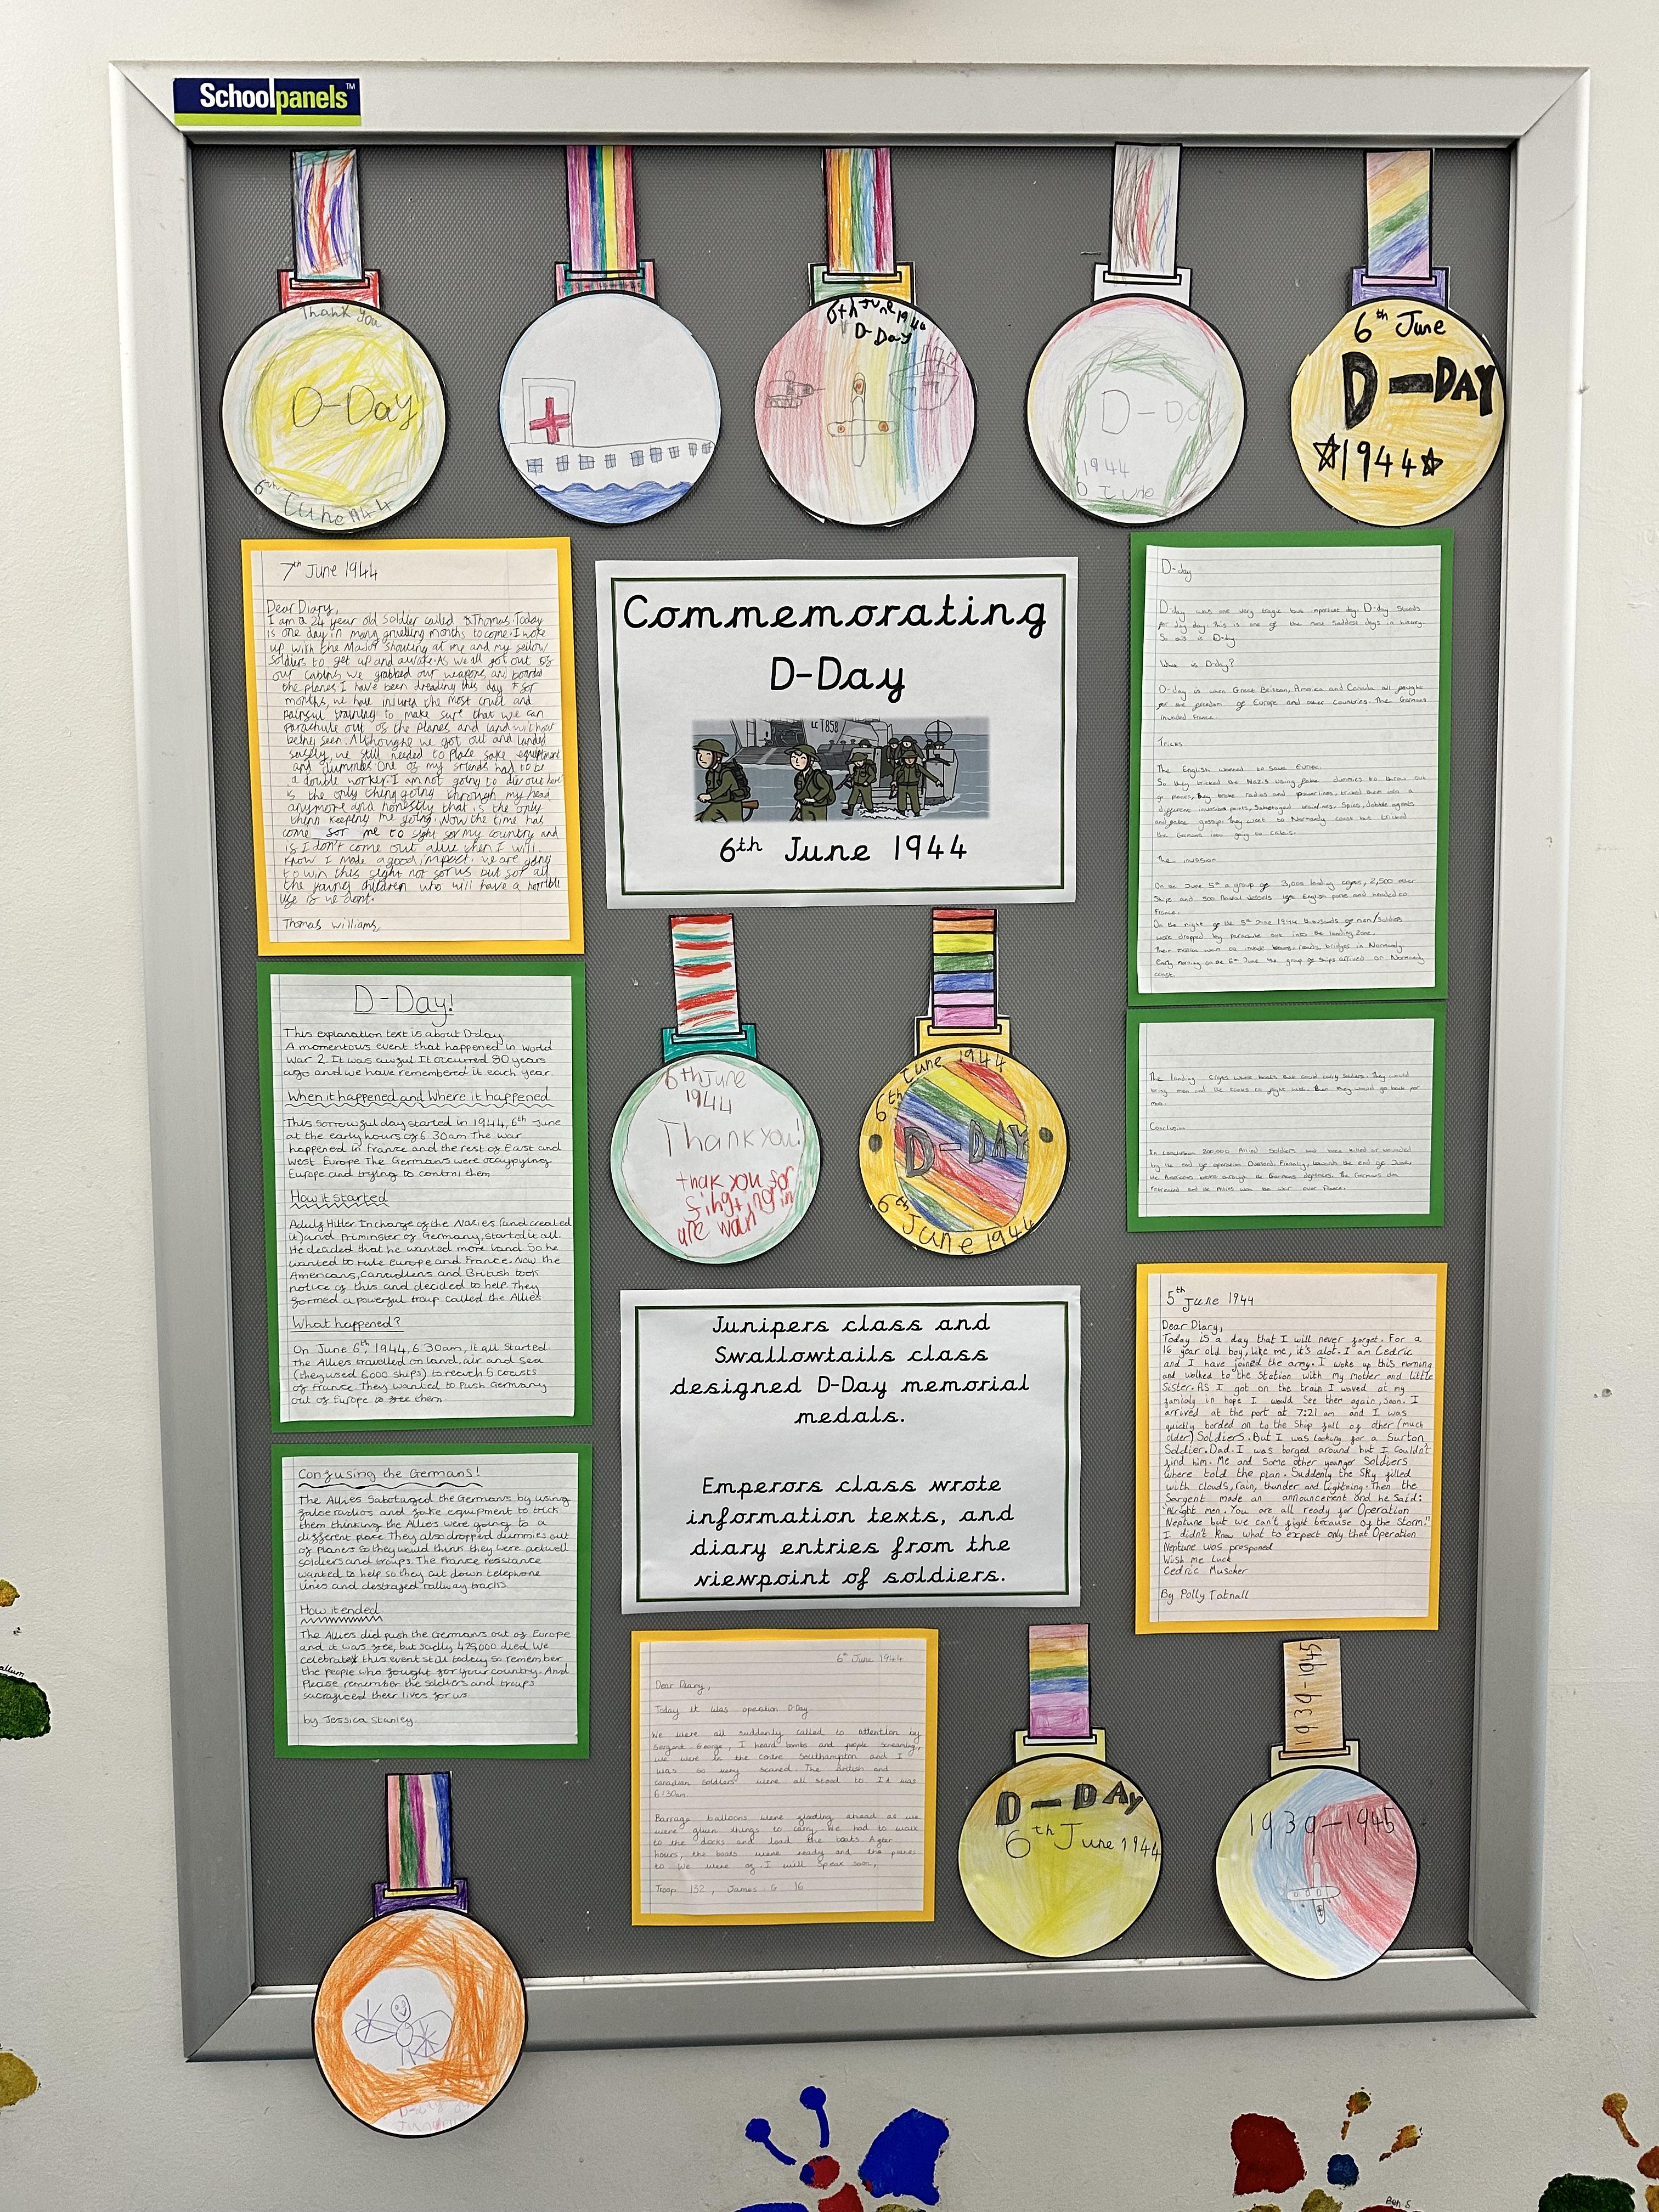 Schoolpanels™
Thank you
D-Day
6th June 1944
6th June 1944
D-Day
D-Day
1944
6 June
6th June
D-DAY
1944
7th June 1944
Dear Diary,
I am a 24 year old soldier called Thomas. Today
is one day in many gruelling months to come. I woke
up with the Major shouting at me and my fellow
soldiers to get up and awake. As we all got out of
our cabins we grabbed our weapons and boarded
the planes I have been dreading this day for
months, we have injured the most cruel and
painful training to make sure that we can
parachute out of the planes and land without
being seen. Althought we got out and landed
safely, we still needed to place fake equipment
and dummies. One of my friends had to be
a double worker. I am not going to die out here
is the only thing going through my head
anymore and honestly that is the only
thinn keeping me going. Now the time has
come for me to fight for my country and
if I don't come out alive then I will
know I made a good impact. We are going
to win this fight not for us but for all
the young children who will have a horrible
life if we dont.
Thomas Williams,
Commemorating
D-Day
LC 1858
6th June 1944
D-day
D-day was one very tragic but important day. D-day stands
for day day. This is one of the most saddest days in history.
So this is D-day.
What is D-day?
D-day is when Great Brittan, America and Canada all fought
for the freedom of Europe and other countries. The Germans
invaded France.
Tricks
The English wanted to save Europe.
So they tricked the Nazis using fake dummies to throw out
of planes, they broke radios and powerlines, tricked them into a
different invasion points, Sabotaged trainlines, Spies, double agents
and fake gossip. They went to Normandy coast but tricked
the Germans into going to Calais.
The invasion
On the June 5th a group of 3,000 landing crafts, 2,500 other
ships and 500 Naval vessels left English ports and headed to
France.
On the night of the 5th June 1944 thousands of men/soldiers
were dropped by parachute out into the landing zone.
Their mission was to invade towns, roads, bridges in Normandy
Early morning on the 6th June the group of ships arrived at Normandy
coast.
D-Day!
This explanation text is about D-day
A momentous event that happened in World
War 2. It was awful It occurred 80 years
ago and we have remembered it each year.
When it happened and Where it happened
This sorrowful day started in 1944, 6th June
at the early hours of 6.30am The war
happened in France and the rest of East and
West Europe The Germans were occupying
Europe and trying to control them
How it started
Adulf Hitler In charge of the Nazies (and created
it) and Priminster of Germany, started it all.
He decided that he wanted more land So he
wanted to rule Europe and France. Now the
Americans, Canadiens and British took
notice of this and decided to help They
formed a powerful troup called the Allies
What happened?
On June 6th, 1944, 6:30am, it all started
The Allies travelled on land, air and sea
(they used 6,000 ships) to reach 5 coasts
of France. They wanted to Push Germany
out of Europe to free them
6th June
1944
Thank you!
thak you for
fingting in
are war
6th June 1944
D-DAY
6th June 1944
The landing crafts where boats that could carry soldiers. They would
bring men and the tanks to fight with. Then they would go back for
more.
Conclusion
In conclusion 200,000 Allied Soldiers had been killed or wounded
by the end of operation Overlord. Finally, towards the end of
the Americans broke through the Germans defences. The Germans
retreated and the Allies won the war over France.
5th June 1944
Dear Diary,
Today is a day that I will never forget. For a
16 year old boy, like me, it's alot. I am Cedric
and I have joined the army. I woke up this morning
and walked to the station with my mother and little
Sister. AS I got on the train I waved at my
family in hope I would See ther again, Soon. I
arrived at the port at 7:21 am and I was
quickly borded on to the Ship full of other (much
older) Soldiers. But I was looking for a Surton
Soldier. Dad. I was barged around but I couldn't
find him. Me and Some other younger Soldiers
where told the plan. Suddenly the Sky filled
with clouds, rain, thunder and lightning. Then the
Sargent made an announcement and he Said:
"Alright men. You are all ready for Operation
Neptune but we can't fight because of the Storm."
I didn't know what to expect only that Operation
Neptune was prosponed
Wish me Luck
Cedric Muscher
By Polly Tatnall
Junipers class and
Swallowtails class
designed D-Day memorial
medals.
Emperors class wrote
information texts, and
diary entries from the
viewpoint of soldiers.
Confusing the Germans!
The Allies Sabotarged the Germans by using
false radios and fake equipment to trick
them thinking the Allies were going to a
different place They also dropped dummies out
of Planes so they would think they were actwell
soldiers and troups. The France resistance
wanted to help so they cut down telephone
lines and destrajed railway tracks
How it ended
The Allies did push the Germans out of Europe
and it was free, but sadly 425,000 died We
celebrate this event still today so remember
the people who fought for your country. And
Please remember the soldiers and troups
sacraficed their lives for us
by Jessica Stanley
6th June 1944
Dear Diary,
Today it was operation D-Day
We were all suddenly called to attention by
Sargent George, I heard bombs and people screaming,
we were in the centre Southampton and I
was so very scared. The british and
canadian soldiers were all stood to It was
6:30am.
Barrage balloons were floating ahead as we
were given things to carry. We had to walk
to the docks and load the boats After
hours, the boats were ready and the planes
to We were of. I will Speak soon,
Troop 132, James G 16
D-DAY
6th June 1944
1939-1945
1939-1945
D-day
Ben S